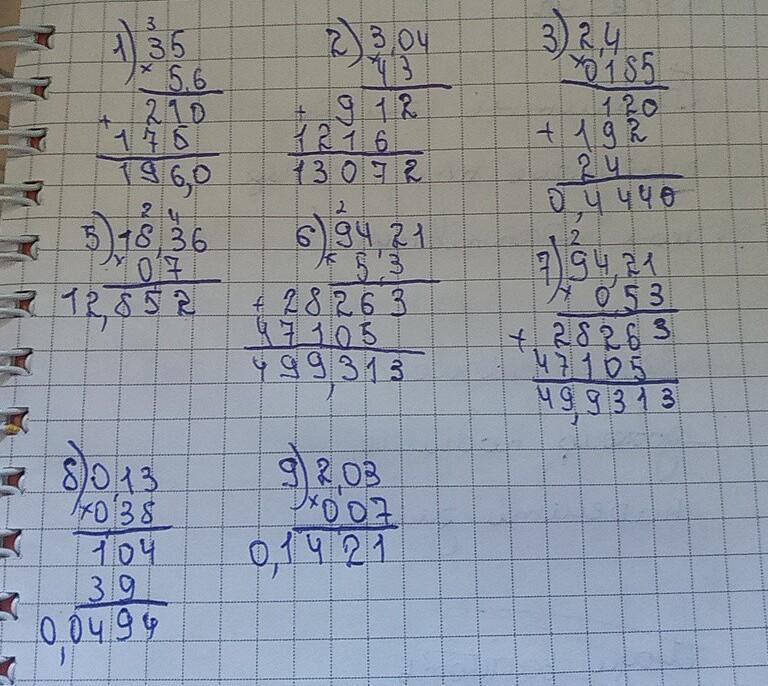 3
1) 35
× 5,6
+ 210
175
196,0
2) 3,04
× 43
+ 912
1216
13072
3) 2,4
× 0185
120
+ 192
24
0,4440
2 4
5) 18,36
× 0,7
12,852
2
6) 94,21
× 5,3
+ 28263
47105
499,313
2
7) 94,21
× 053
+ 28263
47105
49,9313
8) 0,13
× 038
104
39
0,0494
9) 2,03
× 007
0,1421